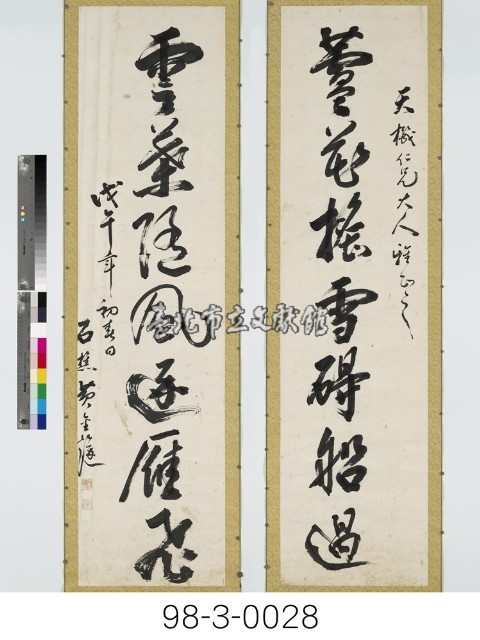 天機仁兄大人雅正之
蘆花搖雪碍船過
雲葉隨風逐雁飛
戊午年初春日
石樵黃金
臺北市立文獻館
98-3-0028